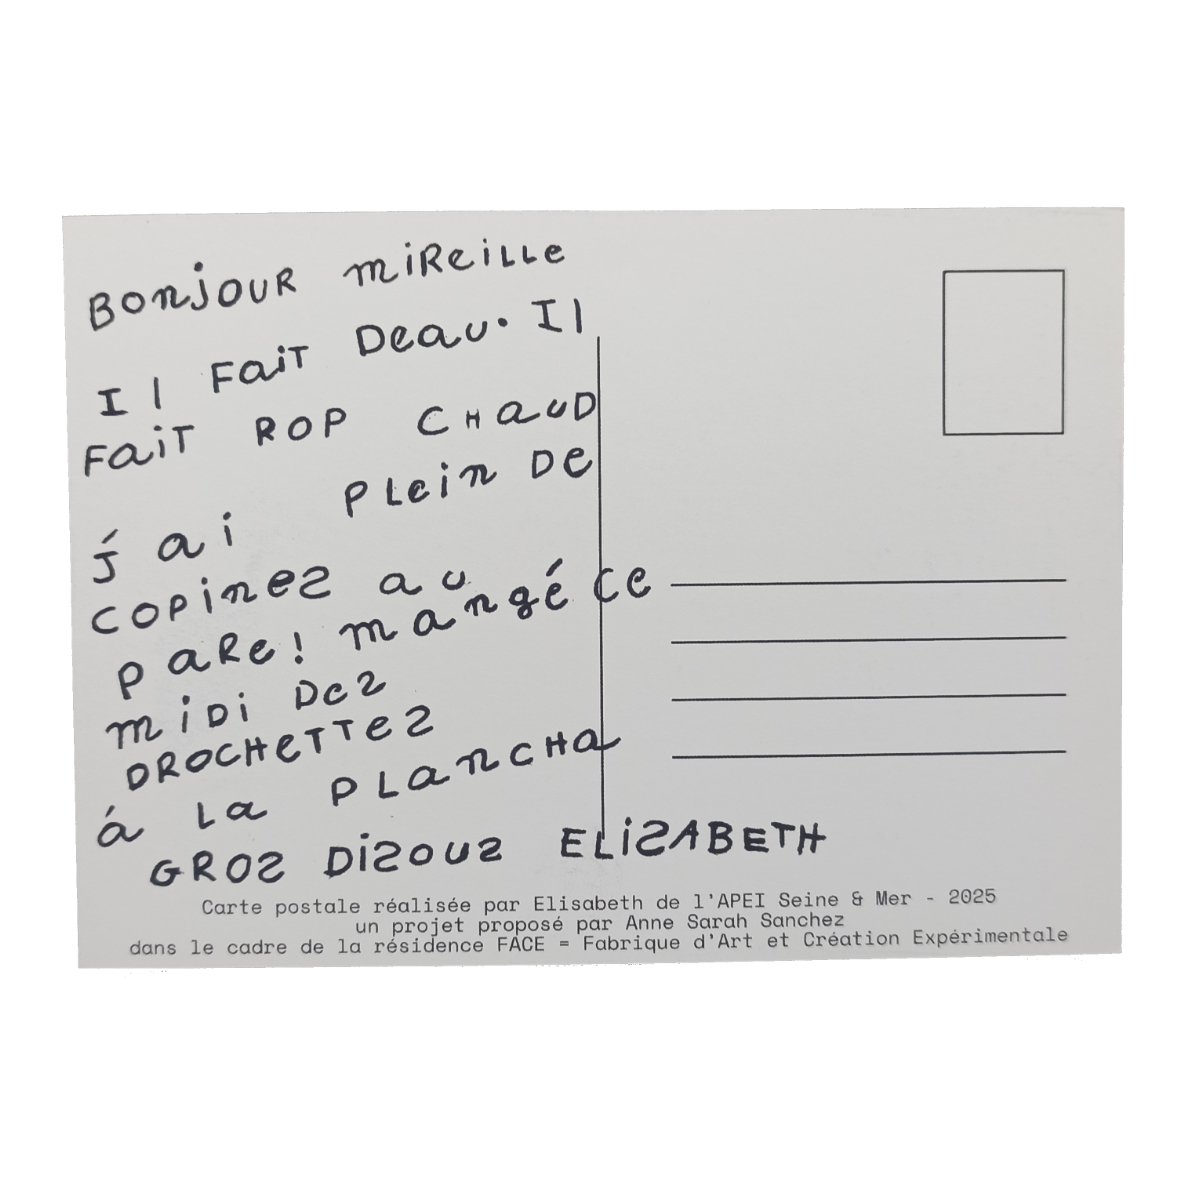 BonjOUR miReiLLe
Il Fait Deau. Il
Fait ROP CHauD
j'ai PLein De
copinez au
pare! mangé ce
miDi Dez
DROCHETTez
á La PLanCHa
GROZ DiZOUZ ELiZABETH
Carte postale réalisée par Elisabeth de l'APEI Seine & Mer - 2025
un projet proposé par Anne Sarah Sanchez
dans le cadre de la résidence FACE = Fabrique d'Art et Création Expérimentale